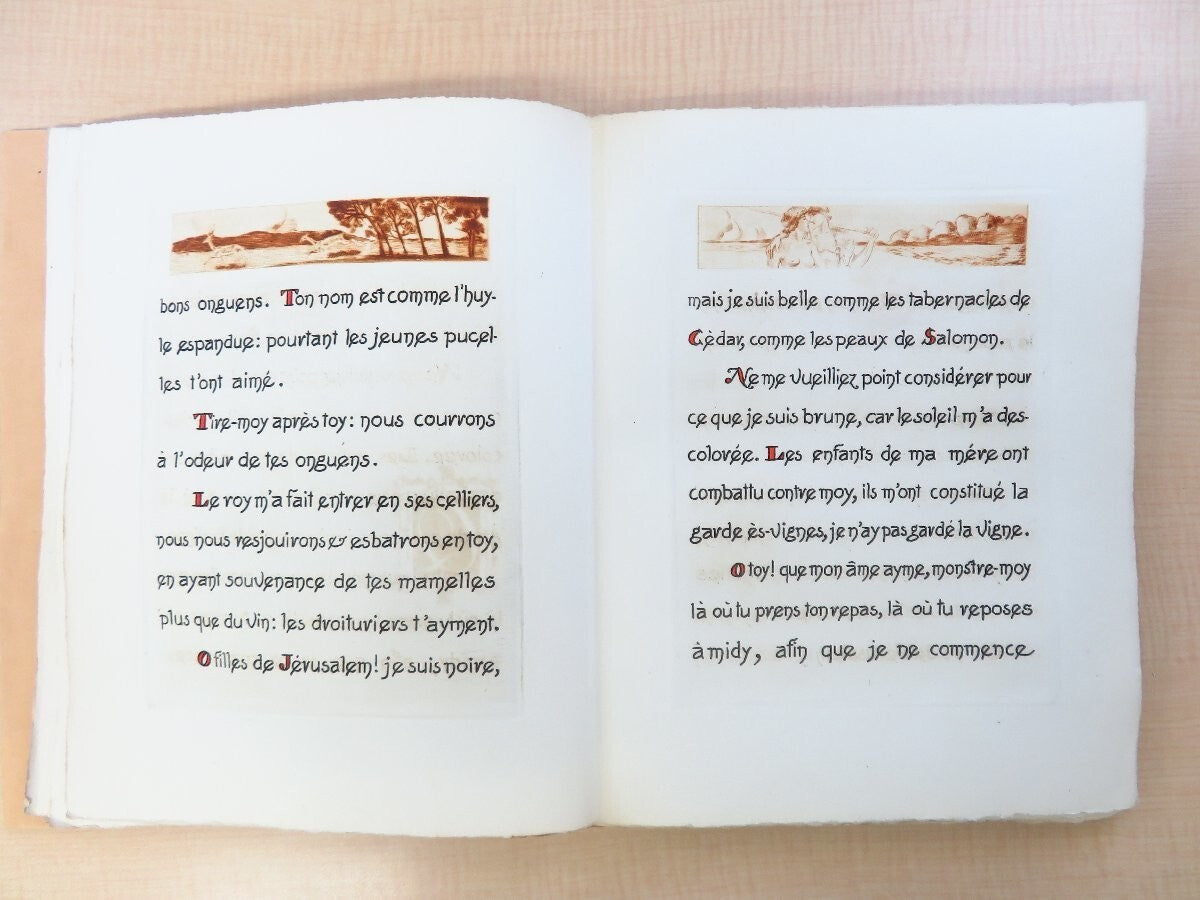 bons onguens. Ton nom est comme l'huy-
le espandue: pourtant les jeunes pucel-
les t'ont aimé.
Tire-moy après toy: nous courrons
à l'odeur de tes onguens.
Le roy m'a fait entrer en ses celliers,
nous nous resjouirons & esbatrons en toy,
en ayant souvenance de tes mamelles
plus que du vin: les droituriers t'ayment.
O filles de Jérusalem! je suis noire,
mais je suis belle comme les tabernacles de
Cèdar, comme les peaux de Salomon.
Ne me vueilliez point considérer pour
ce que je suis brune, car le soleil m'a des-
colorée. Les enfants de ma mére ont
combattu contre moy, ils m'ont constitué la
garde ès-vignes, je n'ay pas gardé la vigne.
O toy! que mon âme ayme, monstre-moy
là où tu prens ton repas, là où tu reposes
à midy, afin que je ne commence